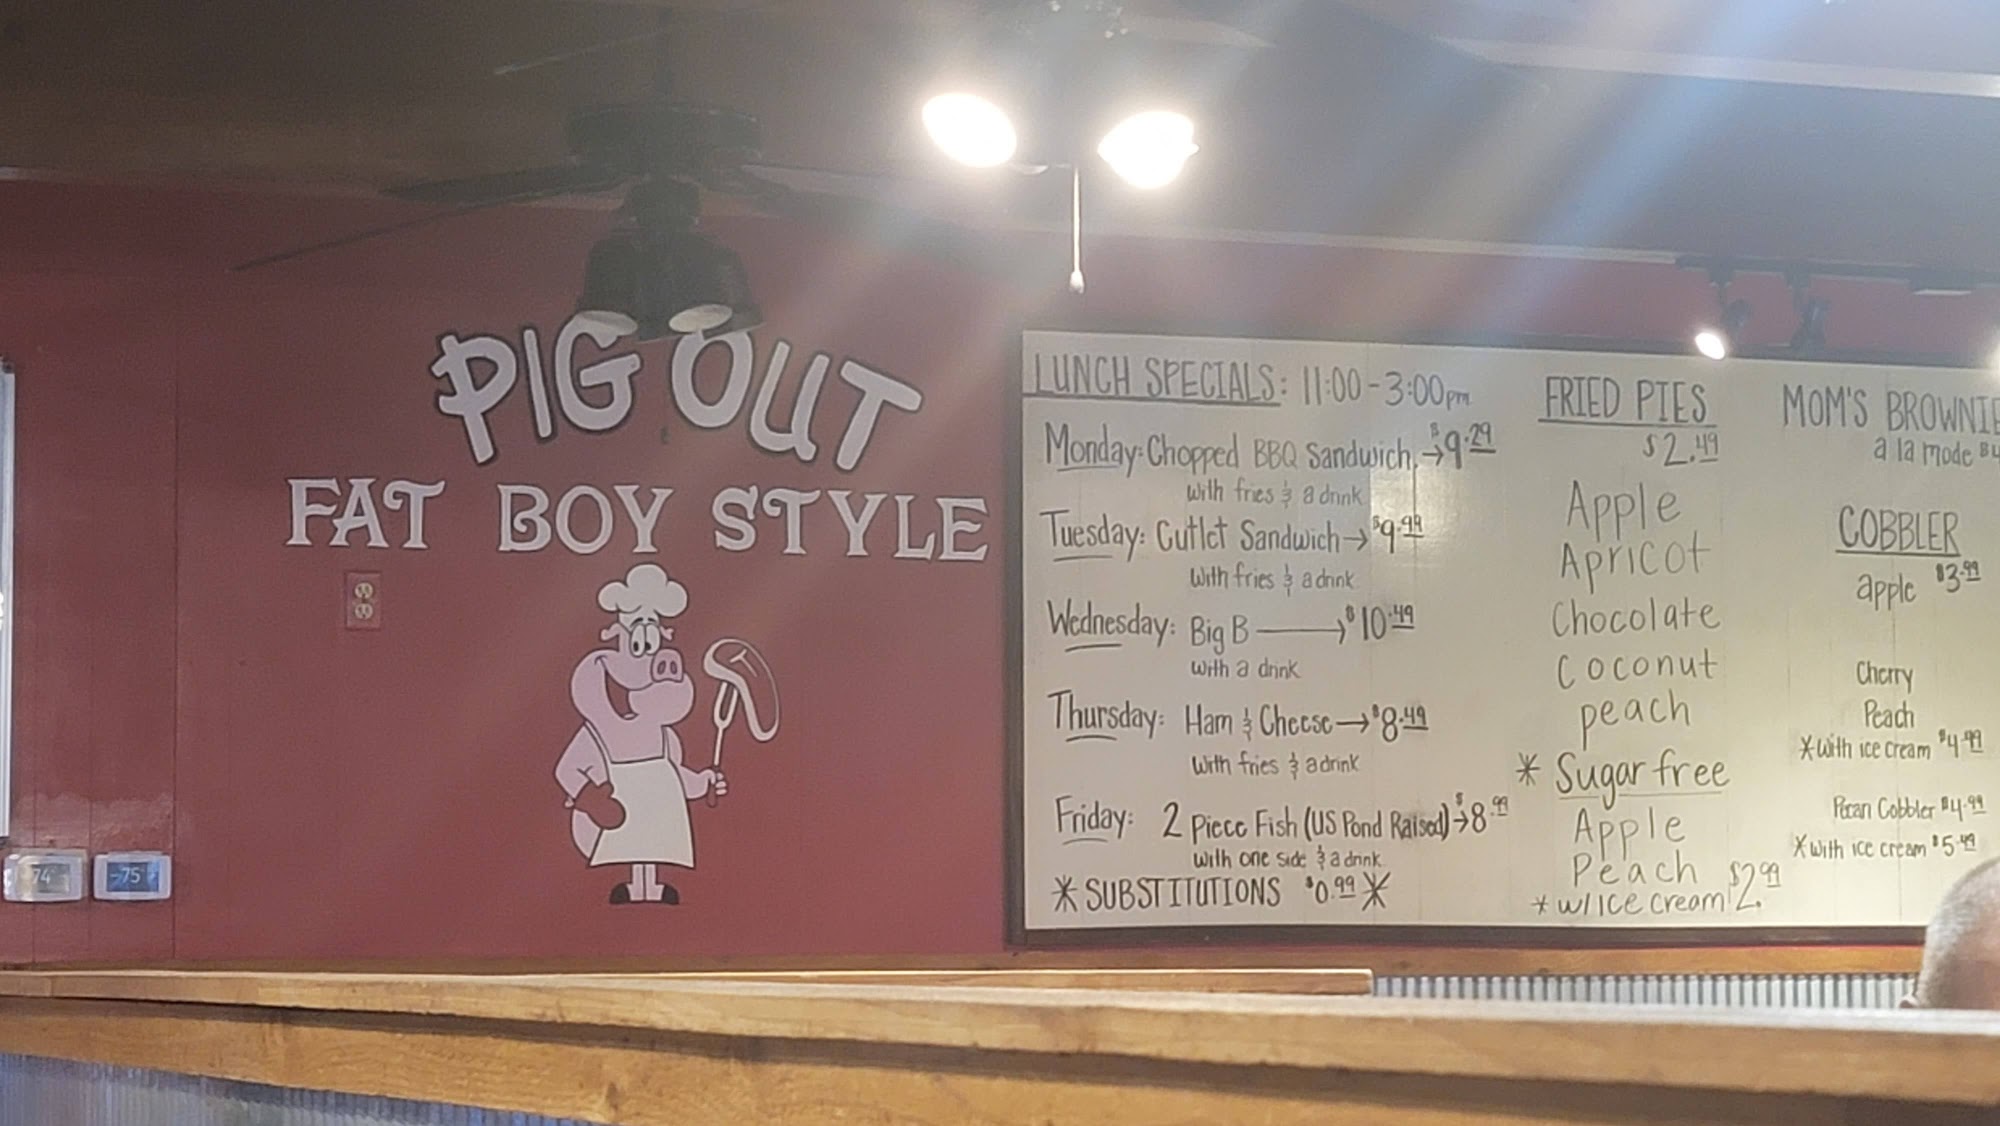 PIG OUT
FAT BOY STYLE
LUNCH SPECIALS: 11:00-3:00pm
Monday: Chopped BBQ Sandwich → $9.29
with fries & a drink
Tuesday: Cutlet Sandwich → $9.99
with fries & a drink
Wednesday: Big B → $10.49
with a drink
Thursday: Ham & Cheese → $8.49
with fries & a drink
Friday: 2 Piece Fish (US Pond Raised) → $8.99
with one side & a drink
* SUBSTITUTIONS $0.99 *
FRIED PIES
$2.49
Apple
Apricot
Chocolate
Coconut
peach
* Sugar free
Apple
Peach
* w/ Ice cream $2.99
MOM'S BROWNIE
a la mode $4
COBBLER
apple $3.99
Cherry
Peach
* with ice cream $4.99
Pecan Cobbler $4.99
* with ice cream $5.49
74
75